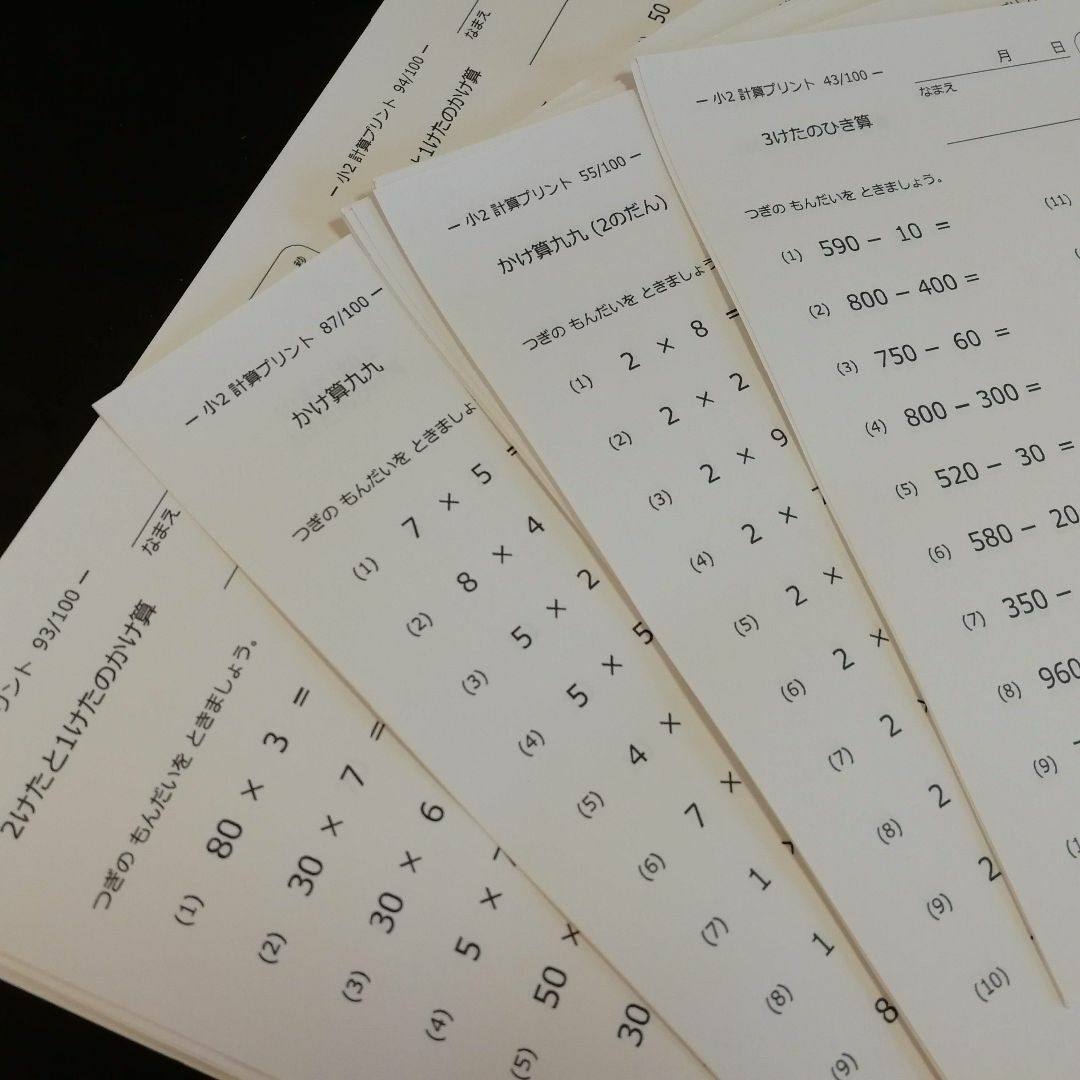 なまえ
50
ー 小2 計算プリント 94/100 ー
と1けたのかけ算
秒
ー 小2 計算プリント 43/100 ー
月 日
なまえ
3けたのひき算
つぎの もんだいを ときましょう。
(1) 590 − 10 =
(2) 800 − 400 =
(3) 750 − 60 =
(4) 800 − 300 =
(5) 520 − 30 =
(6) 580 − 20
(7) 350 −
(8) 960
(9)
(11)
ー 小2 計算プリント 55/100 ー
かけ算九九 (2のだん)
つぎの もんだいを ときましょう
(1) 2 × 8 =
(2) 2 × 2
(3) 2 × 9
(4) 2 ×
(5) 2 ×
(6) 2 ×
(7) 2
(8) 2
(9) 2
(10)
ー 小2 計算プリント 87/100 ー
かけ算九九
つぎの もんだいを ときましょ
(1) 7 × 5 =
(2) 8 × 4
(3) 5 × 2
(4) 5 × 5
(5) 4 ×
(6) 7 ×
(7) 1
(8) 1
(9) 8
リント 93/100 ー
なまえ
2けたと1けたのかけ算
つぎの もんだいを ときましょう。
(1) 80 × 3 =
(2) 30 × 7 =
(3) 30 × 6
(4) 5 ×
(5) 50 ×
30